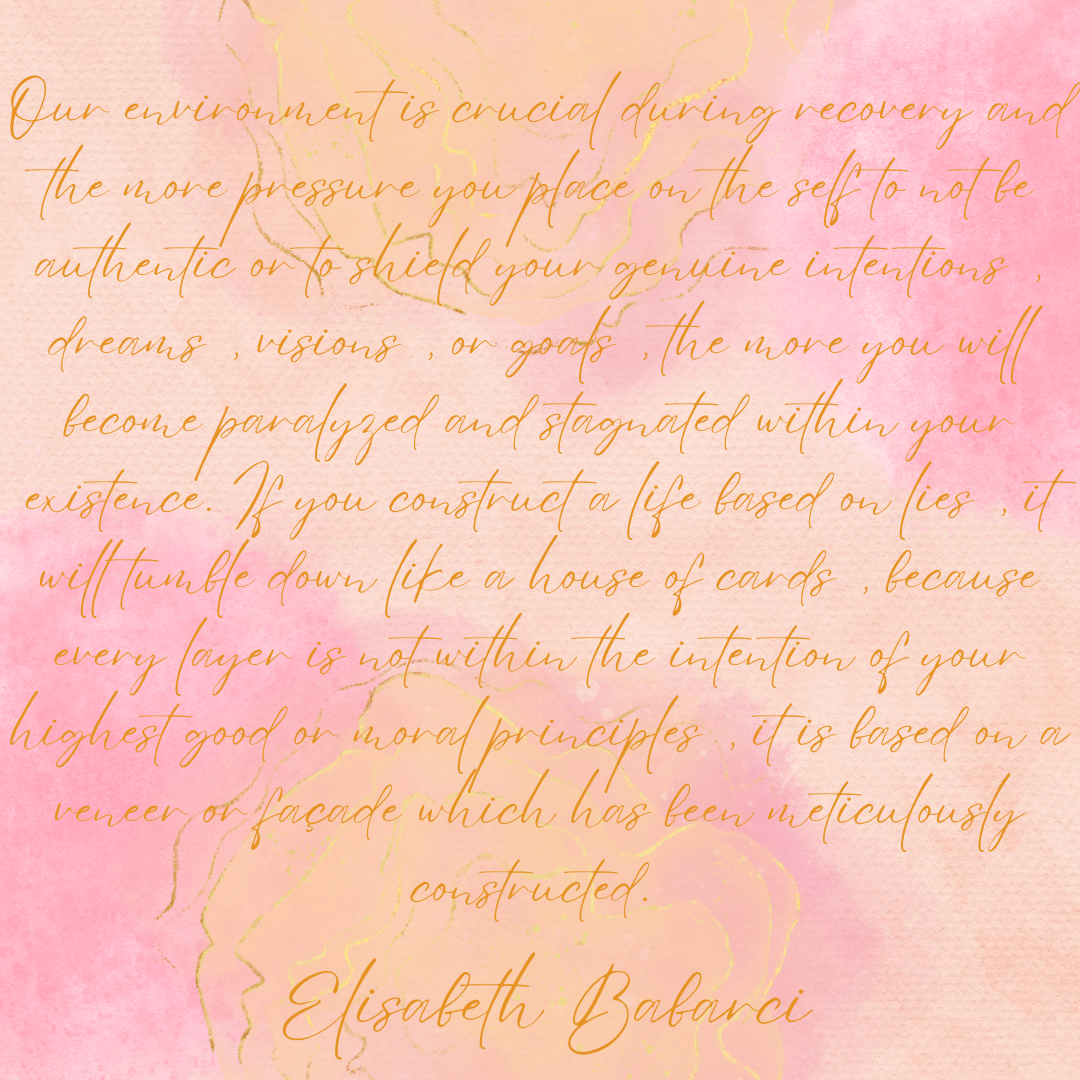 Our environment is crucial during recovery and
the more pressure you place on the self to not be
authentic or to shield your genuine intentions ,
dreams , visions , or goals , the more you will
become paralyzed and stagnated within your
existence. If you construct a life based on lies , it
will tumble down like a house of cards , because
every layer is not within the intention of your
highest good or moral principles , it is based on a
veneer or façade which has been meticulously
constructed.
Elisabeth Babarci